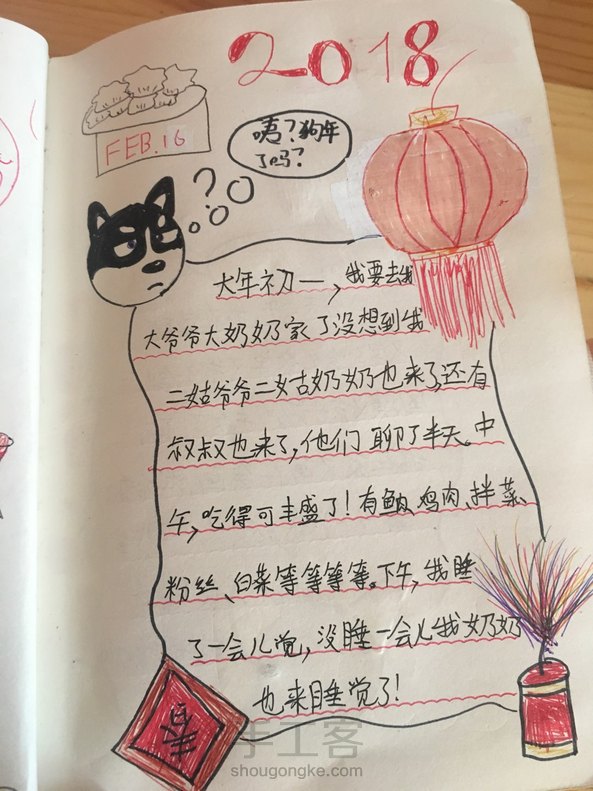 2018
FEB.16
咦?狗年
了吗?
?
大年初一,我要去我
大爷爷大奶奶家了没想到我
二姑爷爷二姑奶奶也来了,还有
叔叔也来了,他们聊了半天。中
午,吃得可丰盛了!有鱼肉、鸡肉、拌菜、
粉丝、白菜等等等等。下午,我睡
了一会儿觉,没睡一会儿我奶奶
也来睡觉了!
春
手工客
shougongke.com